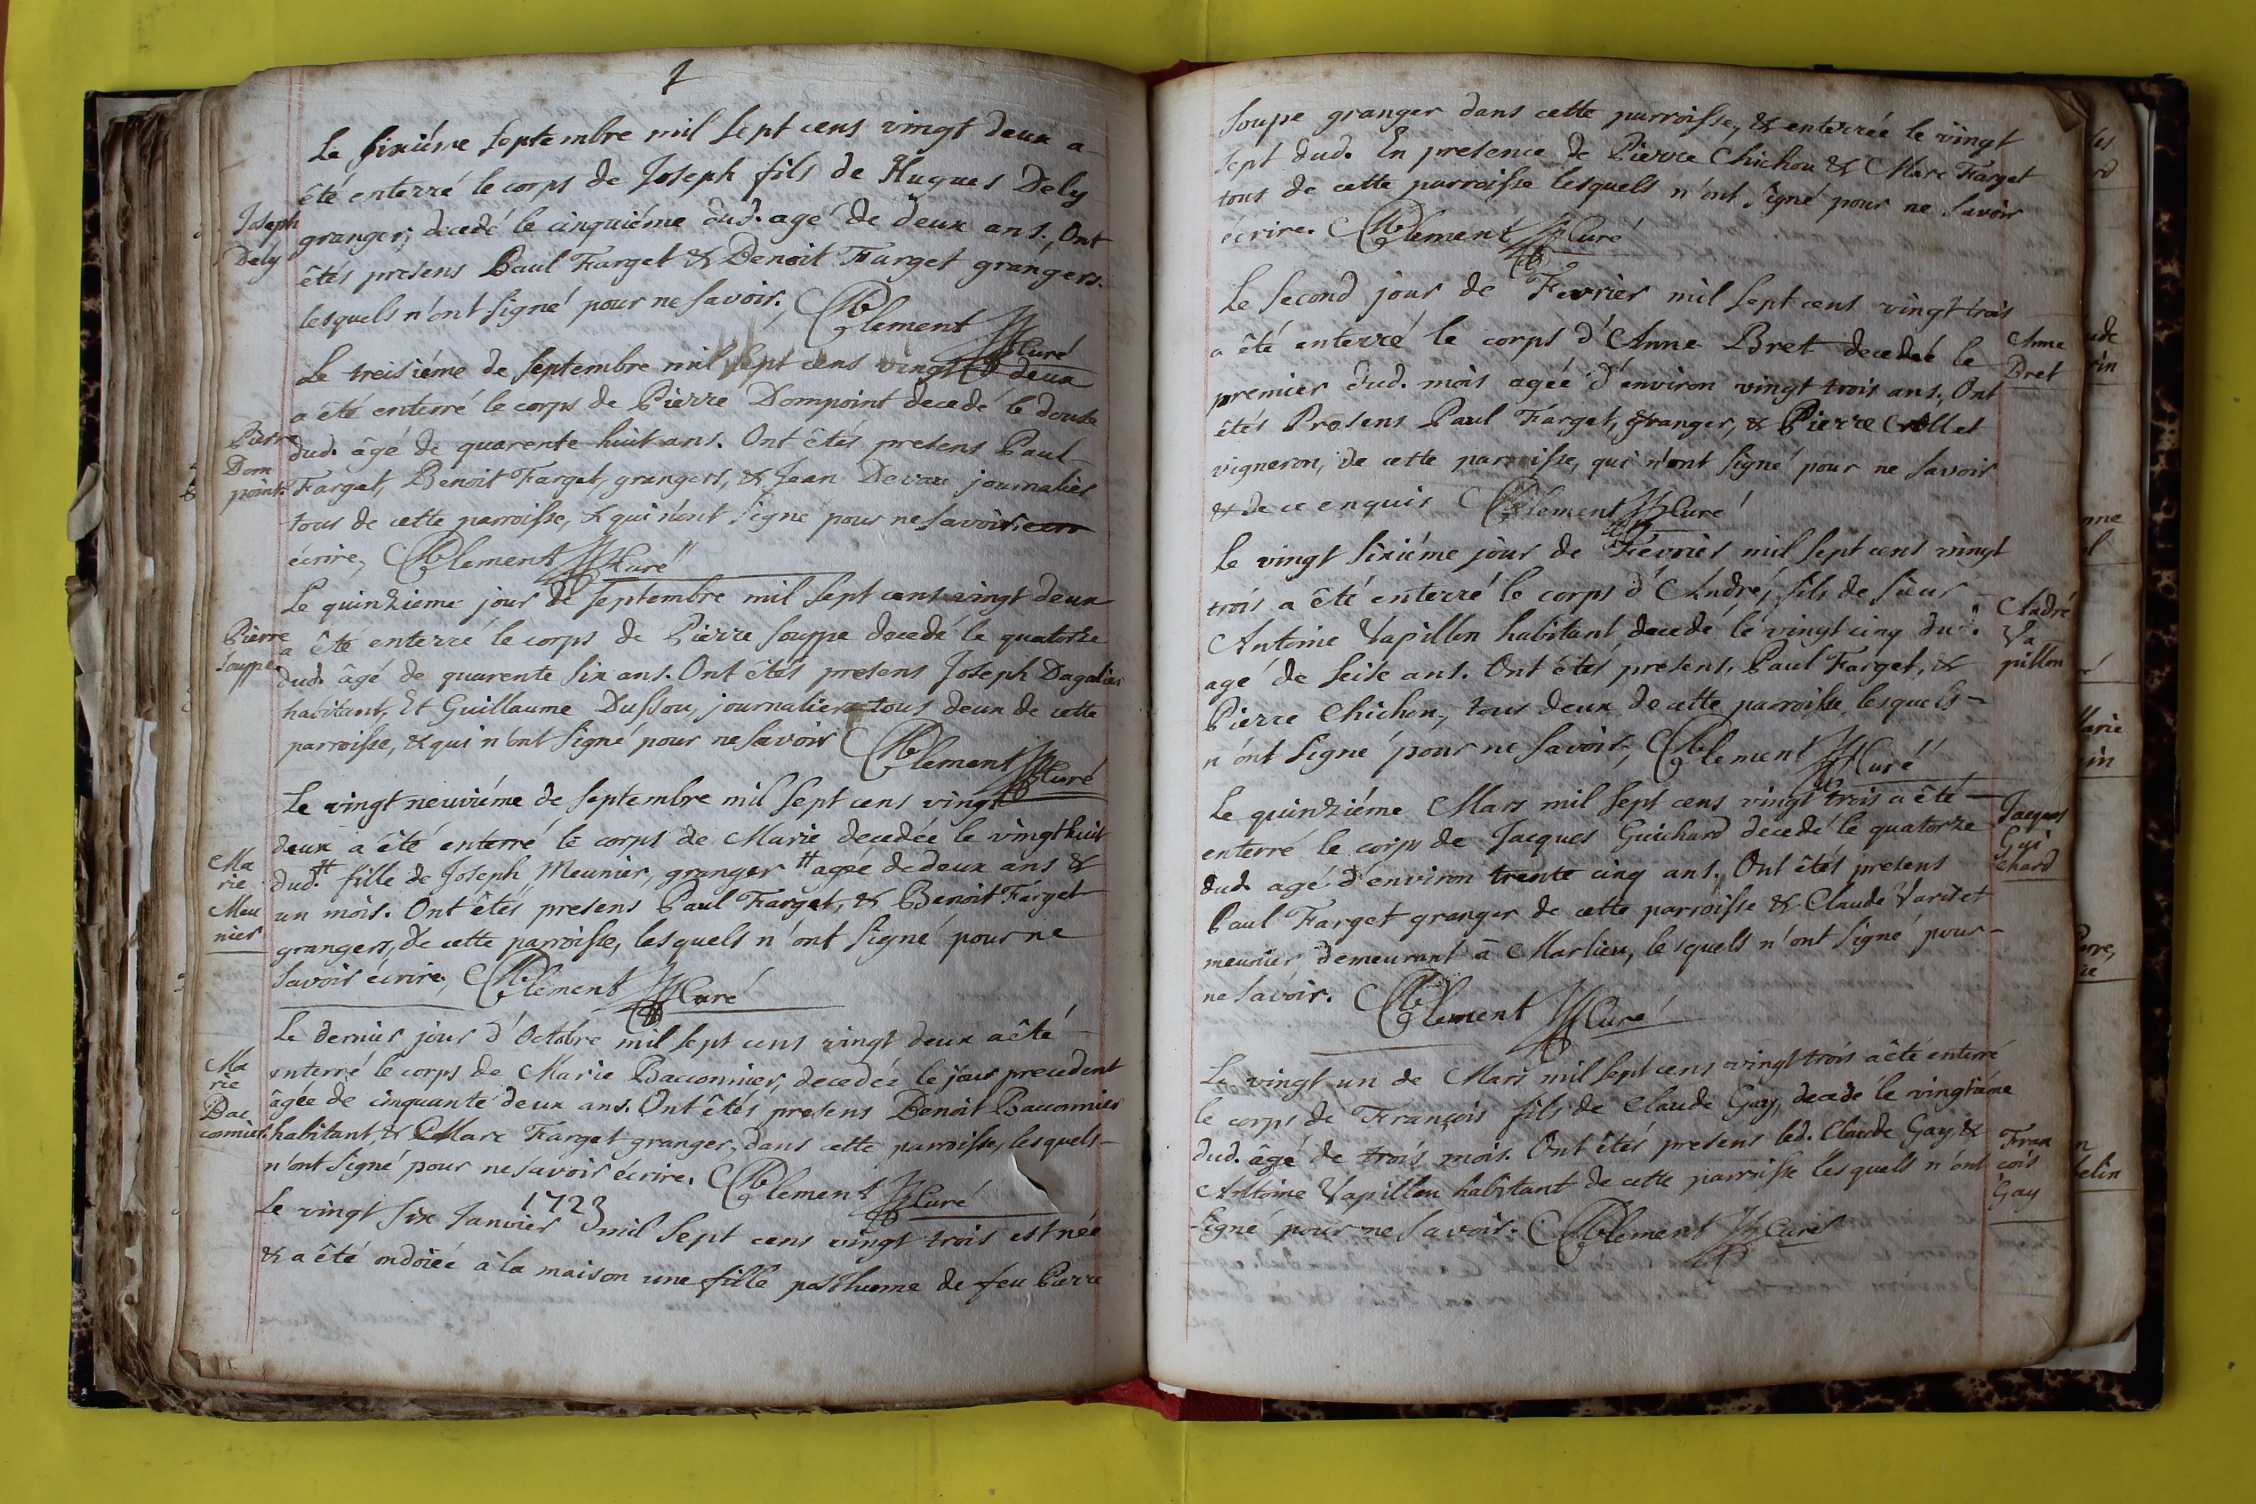 Le sixiéme septembre mil sept cens vingt deux a
été enterré le corps de Joseph fils de Hugues Dely
Joseph
Dely
granger, decedé le cinquiéme dud. agé de deux ans. Ont
êtés presens Paul Farget & Benoit Farget grangers.
lesquels n'ont signé pour ne savoir. Clement Curé
Le treisiéme de septembre mil sept cens vingt deux
a été enterré le corps de Pierre Dompoint decedé le douse
Pierre
Dom
point.
dud. âgé de quarente huit ans. Ont êtés presens Paul
Farget, Benoit Farget, grangers, & Jean Devau journalier
tous de cette parroisse, & qui n'ont signé pour ne savoir
écrire, Clement Curé
Le quinzieme jour de septembre mil sept cens vingt deux
Pierre
souppe.
a été enterré le corps de Pierre souppe decedé le quatorze
dud. âgé de quarente six ans. Ont êtés presens Joseph Dagalier
habitant, Et Guillaume Dussou, journaliers tous deux de cette
parroisse, & qui n'ont signé pour ne savoir Clement Curé
Le vingt neuviéme de septembre mil sept cens vingt
deux a été enterré le corps de Marie decedée le vingt huit
Ma
rie
Meu
nier
dud. # fille de Joseph Meunier, granger # agée de deux ans &
un mois. Ont êtés presens Paul Farget, & Benoit Farget
grangers, de cette parroisse, lesquels n'ont signé pour ne
savoir écrire. Clement Curé
Le dernier jour d'Octobre mil sept cens vingt deux a êté
Ma
rie
Bac
connier.
enterré le corps de Marie Bacconnier, decedée le jour precedent
âgée de cinquante deux ans. Ont êtés presens Benoit Bacconnier
habitant, & Marc Farget granger, dans cette parroisse, lesquels
n'ont signé pour ne savoir écrire. Clement Curé
1723
Le vingt six Janvier mil sept cens vingt trois est née
& a été ondoiée à la maison une fille posthume de feu Pierre
Soupe granger dans cette parroisse, & enterrée le vingt
sept dud. En presence de Pierre Chichon & Marc Farget
tous de cette parroisse lesquels n'ont signé pour ne savoir
écrire. Clement Curé
Le second jour de Fevrier mil sept cens vingt trois
a été enterré le corps d'Anne Bret decedeé le
Anne
Bret
premier dud. mois agée d'environ vingt trois ans. Ont
êtés Presens Paul Farget, granger, & Pierre Crollet
vigneron, de cette parroisse, qui n'ont signé pour ne savoir
& de ce enquis Clement Curé
Le vingt sixiéme jour de Fevrier mil sept cens vingt
trois a êté enterré le corps d'André, fils de sieur
André
Va
pillon
Antoine Vapillon habitant decedé le vingt cinq dud.
agé de seise ans. Ont êtés presens, Paul Farget, &
Pierre Chichon, tous deux de cette parroisse lesquels
n'ont signé pour ne savoir, Clement Curé
Le quinziéme Mars mil sept cens vingt trois a êté
Jacques
Gui
chard
enterré le corps de Jacques Guichard decedé le quatorze
dud. agé d'environ trente cinq ans. Ont êtés presens
Paul Farget granger de cette parroisse & Claude Varitet
meunier demeurant à Marlieu, lesquels n'ont signé pour
ne savoir. Clement Curé
Le vingt un de Mars mil sept cens vingt trois a êté enterré
le corps de François fils de Claude Gay, decedé le vingtiéme
Fran
cois
Gay
dud. âgé de trois mois. Ont êtés presens led. Claude Gay, &
Antoine Vapillon habitant de cette parroisse lesquels n'ont
signé pour ne savoir. Clement Curé